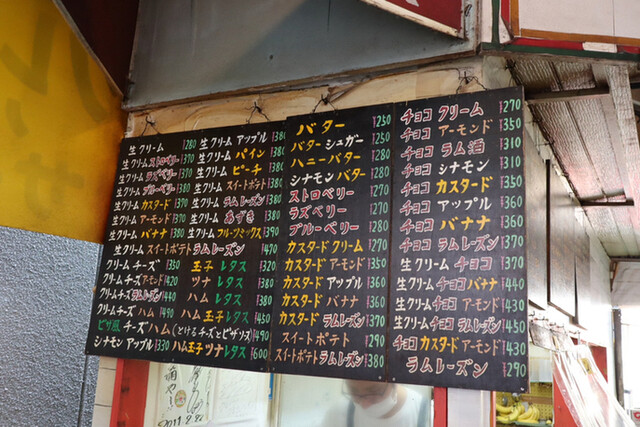 生クリーム ¥280
生クリームストロベリー ¥370
生クリームラズベリー ¥370
生クリームブルーベリー ¥370
生クリームカスタード ¥370
生クリームアーモンド ¥370
生クリームバナナ ¥380
生クリームスイートポテトラムレーズン ¥490
クリームチーズ ¥350
クリームチーズアーモンド ¥420
クリームチーズラムレーズン ¥440
クリームチーズハム ¥440
ピザ風チーズハム(とけるチーズとピザソース) ¥490
シナモンアップル ¥330
生クリームアップル ¥380
生クリームパイン ¥380
生クリームピーチ ¥380
生クリームスイートポテト ¥380
生クリームラムレーズン ¥380
生クリームあずき ¥380
生クリームフルーツミックス ¥390
玉子レタス ¥320
ツナレタス
ハムレタス
ハム玉子レタス ¥450
ハム玉子ツナレタス ¥600
バター ¥250
バターシュガー ¥250
ハニーバター ¥280
シナモンバター ¥280
ストロベリー ¥270
ラズベリー ¥270
ブルーベリー ¥280
カスタードクリーム ¥270
カスタードアーモンド ¥350
カスタードアップル ¥360
カスタードバナナ ¥360
カスタードラムレーズン ¥370
スイートポテト ¥290
スイートポテトラムレーズン ¥380
チョコクリーム ¥270
チョコアーモンド ¥350
チョコラム酒 ¥310
チョコシナモン ¥310
チョコカスタード ¥350
チョコアップル ¥360
チョコバナナ ¥360
チョコラムレーズン ¥370
生クリームチョコ ¥370
生クリームチョコバナナ ¥440
生クリームチョコアーモンド ¥430
生クリームチョコラムレーズン ¥450
チョコカスタードアーモンド ¥430
ラムレーズン ¥290